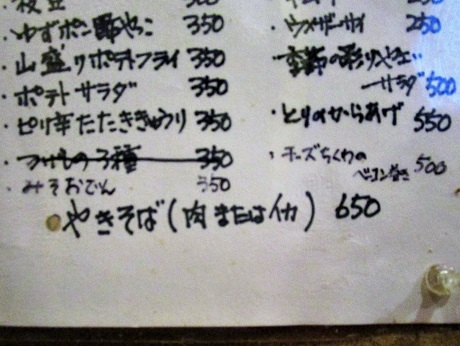 枝豆 350
・ゆずポン酢やっこ 350
・山盛りポテトフライ 350
・ポテトサラダ 350
・ピリ辛たたききゅうり 350
・つけもの3種 350
・みそおでん 350
やきそば(肉またはイカ) 650
250
・季節の彩りやさい
サラダ 500
・とりのからあげ 550
・チーズちくわの
ベーコン巻き 500